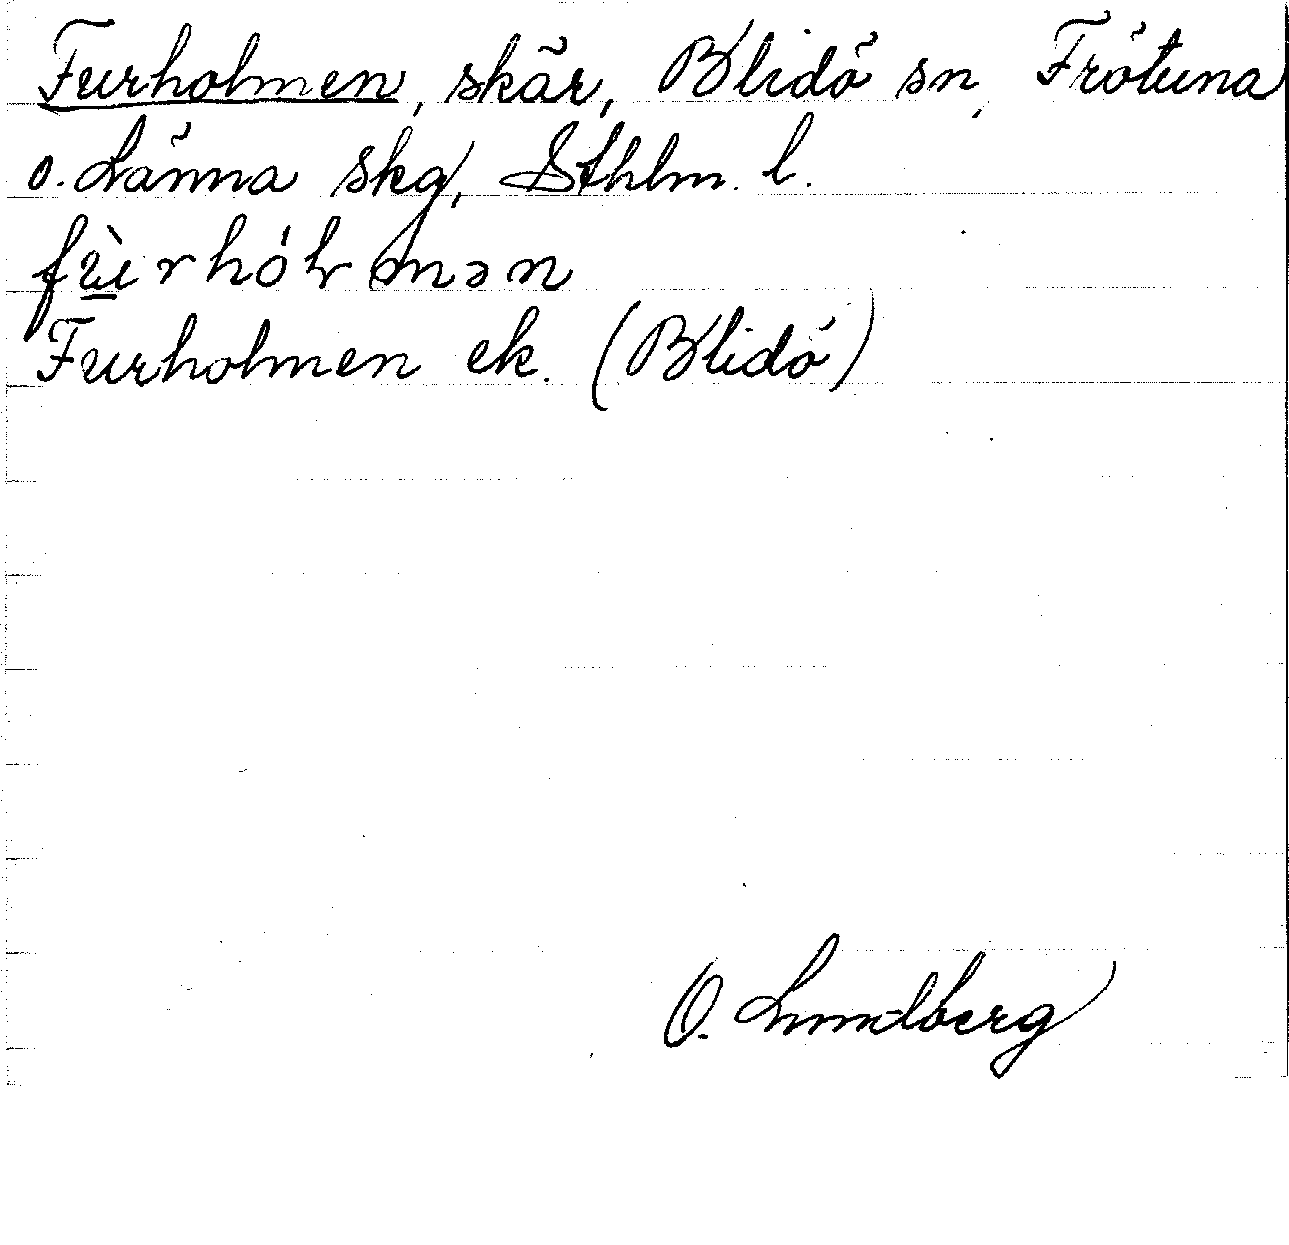 Furholmen, skär, Blidö sn, Frötuna
o. Länna skg, Sthlm. l.
fùrhólmən
Furholmen ek. (Blidö)
O. Lundberg